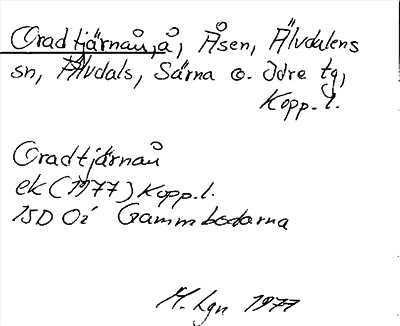 Oradtjärnån, å, Åsen, Älvdalens
sn, Älvdals, Särna o. Idre tg,
Kopp. l.
Oradtjärnån
ek (1977) Kopp. l.
15D Oi Gammbodarna
M. Lgn 1977